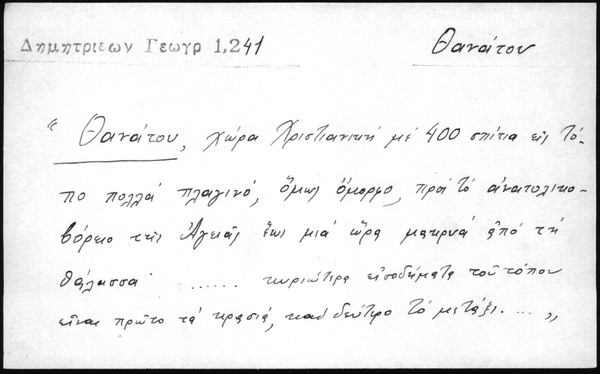 Δημητριεων Γεωγρ 1,241
Θανάτου
“ Θανάτου, χώρα Χριστιανική μέ 400 σπίτια εἰς τό-
πο πολλά πλαγινό, ὅμως ὄμορφο, πρός τό ἀνατολικο-
βόρειο τῆς Ἀγειᾶς ἕως μιά ὥρα μακρυά ἀπό τή
θάλασσα ...... κυριώτερα εἰσοδήματα τοῦ τόπου
εἶναι πρῶτο τά κρασιά, καί δεύτερο τό μετάξι. ... „